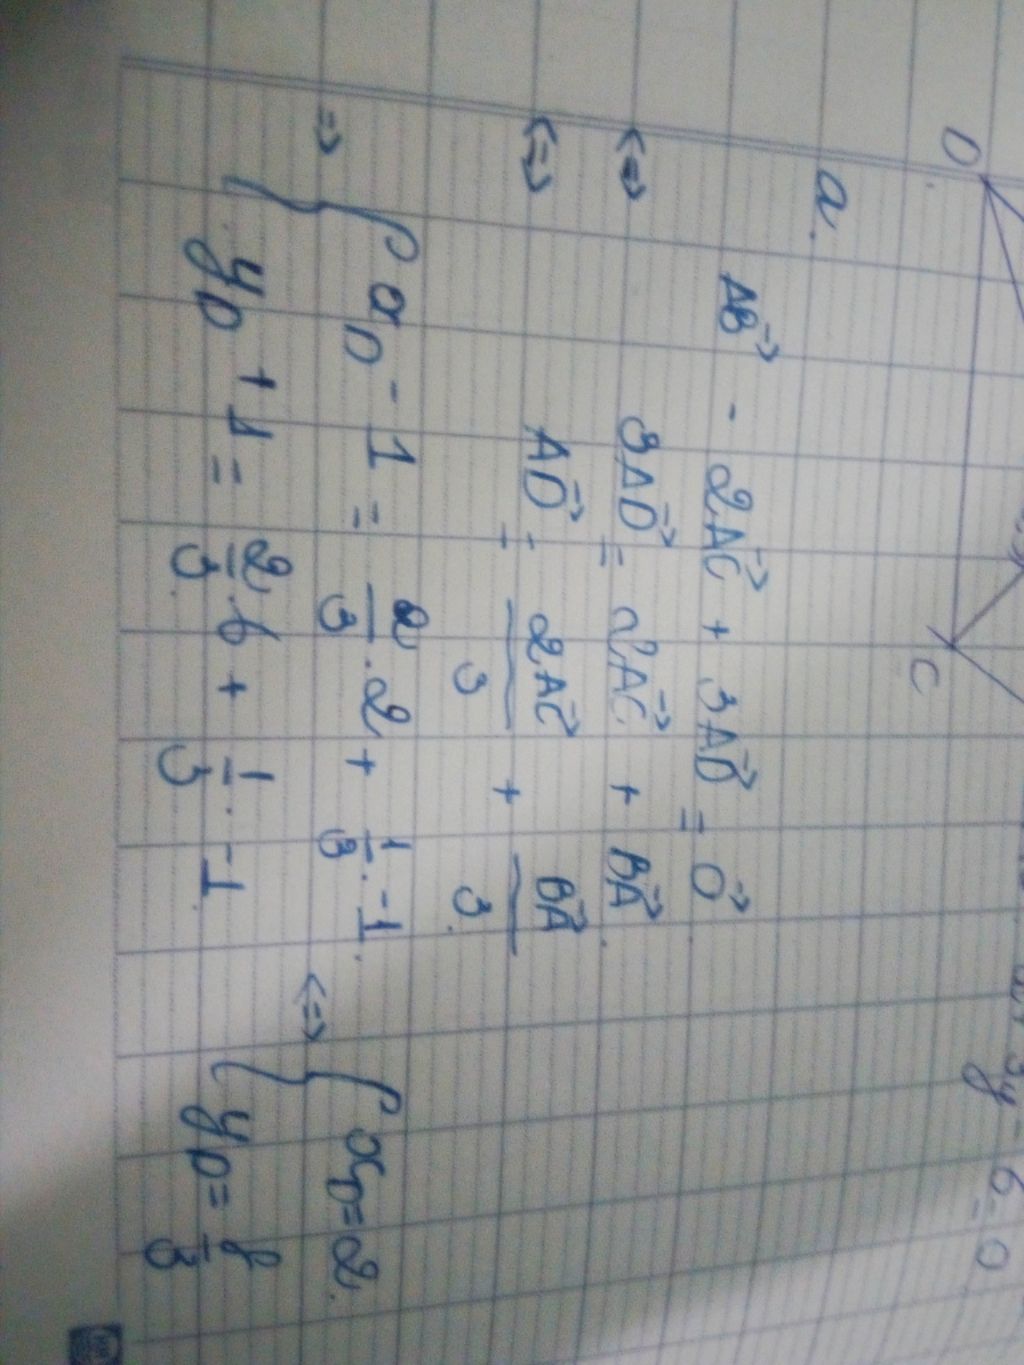 D
C
3y - 6 = 0
a.
AB⃗ - 2AC⃗ + 3AD⃗ = O⃗
<=> 3AD⃗ = 2AC⃗ + BA⃗.
<=> AD⃗ = 2AC⃗/3 + BA⃗/3.
=> { x_D - 1 = 2/3 . 2 + 1/3 . -1. <=> { x_D = 2.
y_D + 1 = 2/3 . 6 + 1/3 . -1. y_D = 8/3